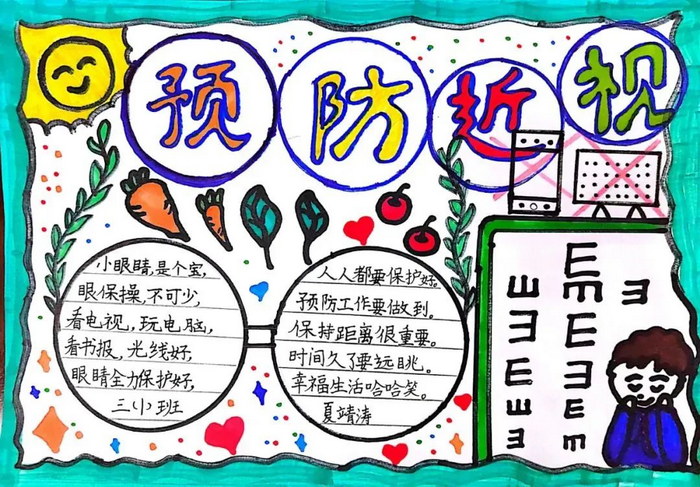 预防近视
小眼睛,是个宝,
眼保操,不可少,
看电视,玩电脑,
看书报,光线好,
眼睛全力保护好,
三(小)班
人人都要保护好。
预防工作要做到。
保持距离很重要。
时间久了要远眺。
幸福生活哈哈笑。
夏靖涛
E
ш E m ヨ
ヨ E
E ヨ
ш E
ヨ m